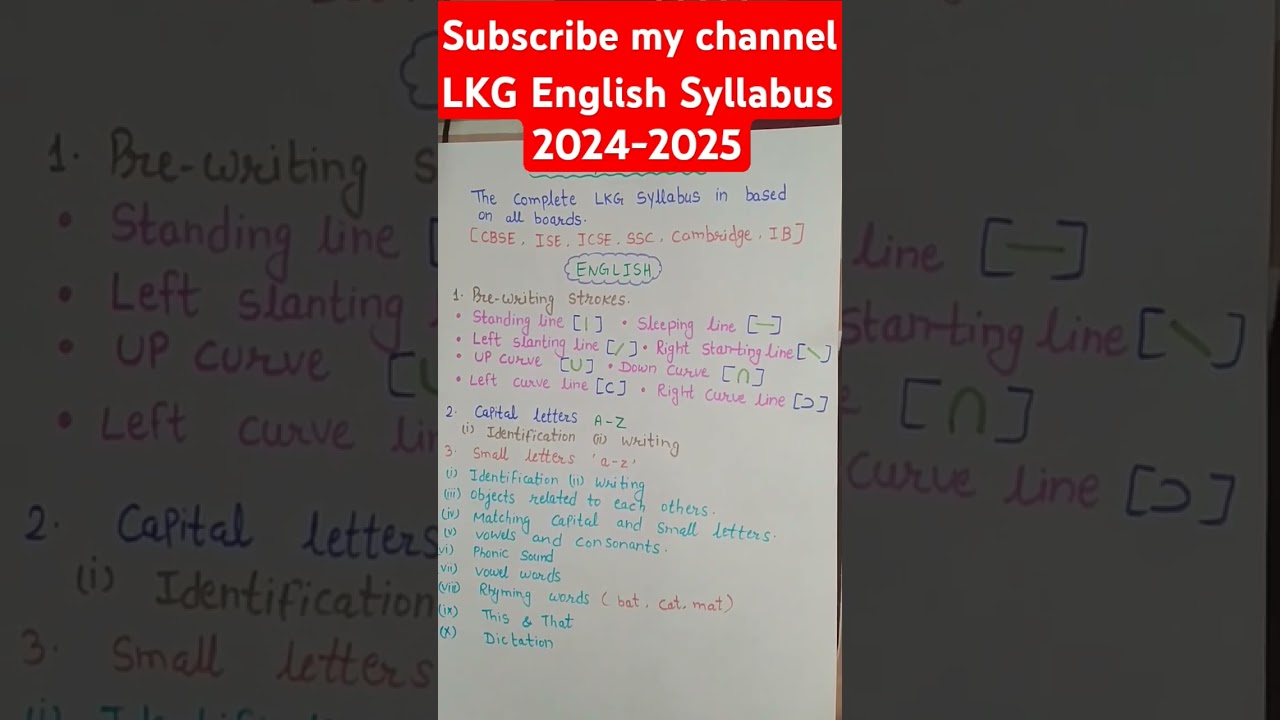 Subscribe my channel
LKG English Syllabus
2024-2025
The complete LKG Syllabus in based
on all boards.
[CBSE, ISE, ICSE, SSC, Cambridge, IB]
ENGLISH
1. Pre-writing strokes.
• Standing line [|] • Sleeping line [—]
• Left slanting line [/] • Right Starting line [\]
• UP curve [∪] • Down curve [∩]
• Left curve line [⊂] • Right curve line [⊃]
2. Capital letters A-Z
(i) Identification (ii) writing
3. Small letters 'a-z'
(i) Identification (ii) writing
(iii) objects related to each others.
(iv) Matching capital and small letters.
(v) vowels and consonants.
vi) Phonic Sound
vii) vowel words
(viii) Rhyming words (bat, cat, mat)
(ix) This & That
(x) Dictation